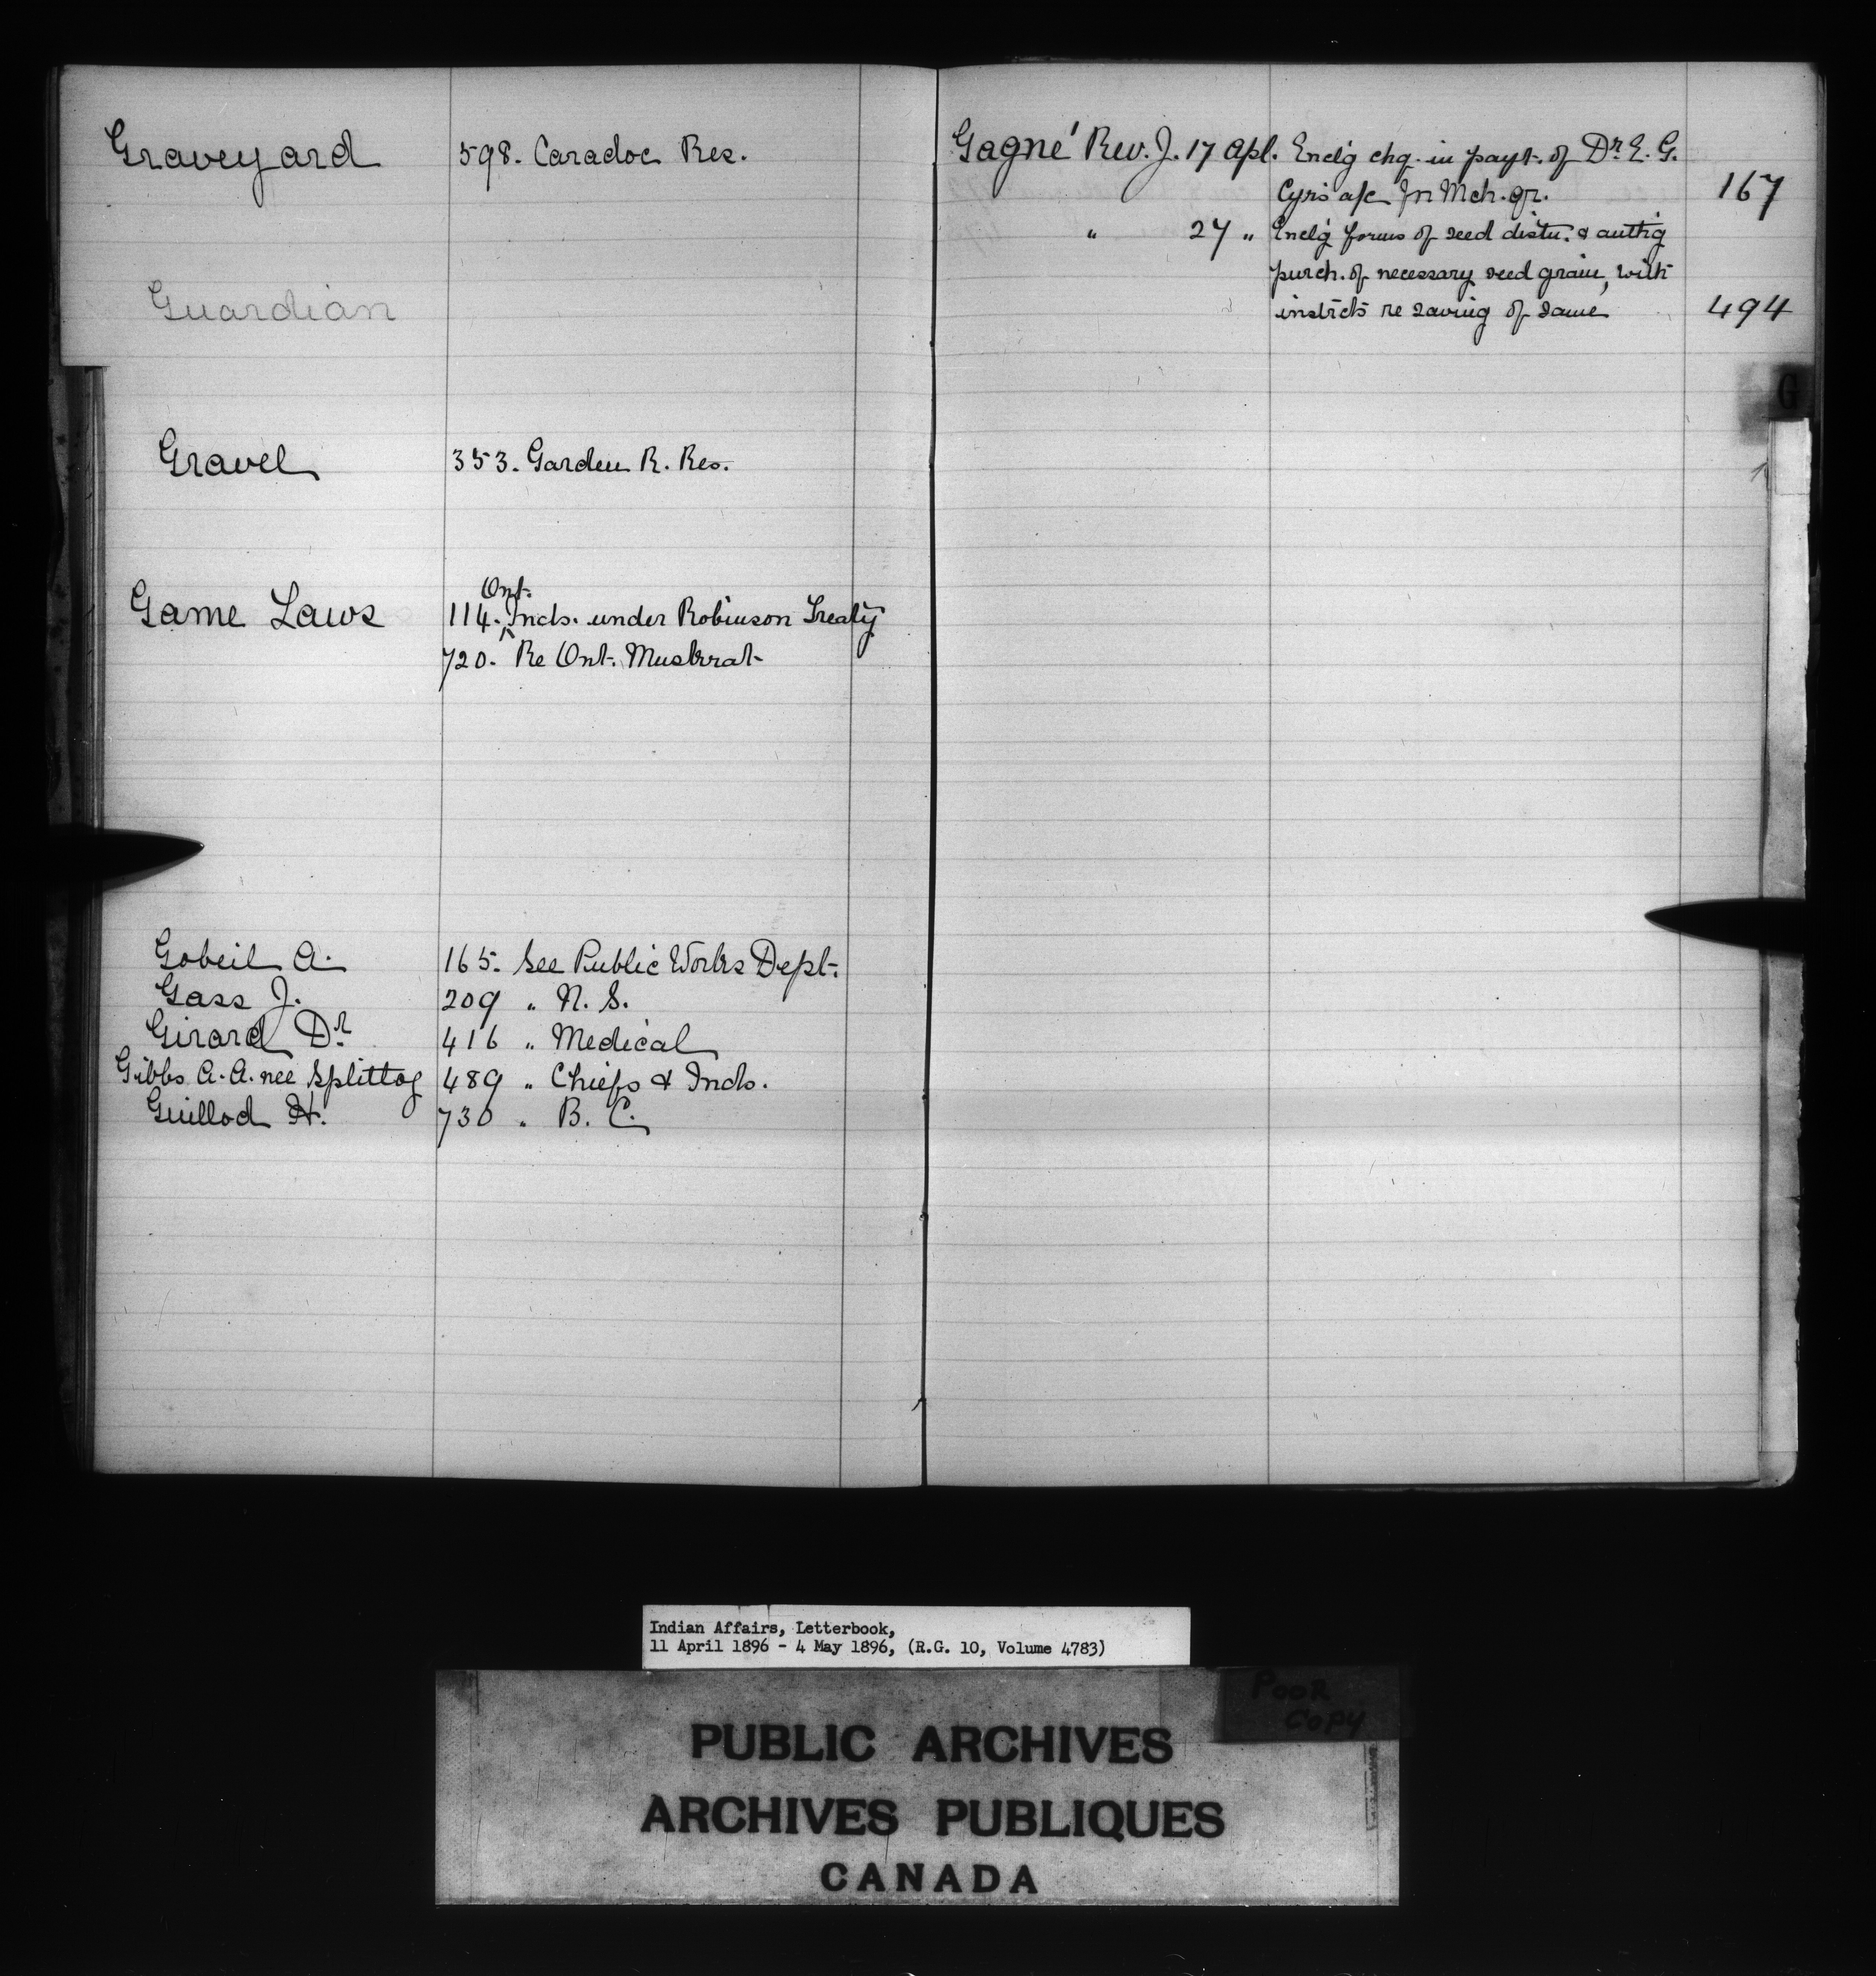 Graveyard 598. Caradoc Res.
Guardian
Gravel 353. Garden R. Res.
Game Laws 114. Ont. Inds. under Robinson Treaty
720. Re Ont. Muskrat
Gobeil A. 165. See Public Works Dept.
Gass J. 209 " N. S.
Girard Dr. 416 " Medical
Gibbs A. A. nee Splitlog 489 " Chiefs & Inds.
Guillod H. 730 " B. C.
Gagné Rev. J. 17 Apl. Enclg chq. in payt. of Dr. E. G.
Cyr's a/c for Mch. qr. 167
" 27 " Enclg forms of seed distn. & authg
purch. of necessary seed grain, with
instrcts re saving of same 494
G
Indian Affairs, Letterbook,
11 April 1896 - 4 May 1896, (R.G. 10, Volume 4783)
POOR
COPY
PUBLIC ARCHIVES
ARCHIVES PUBLIQUES
CANADA